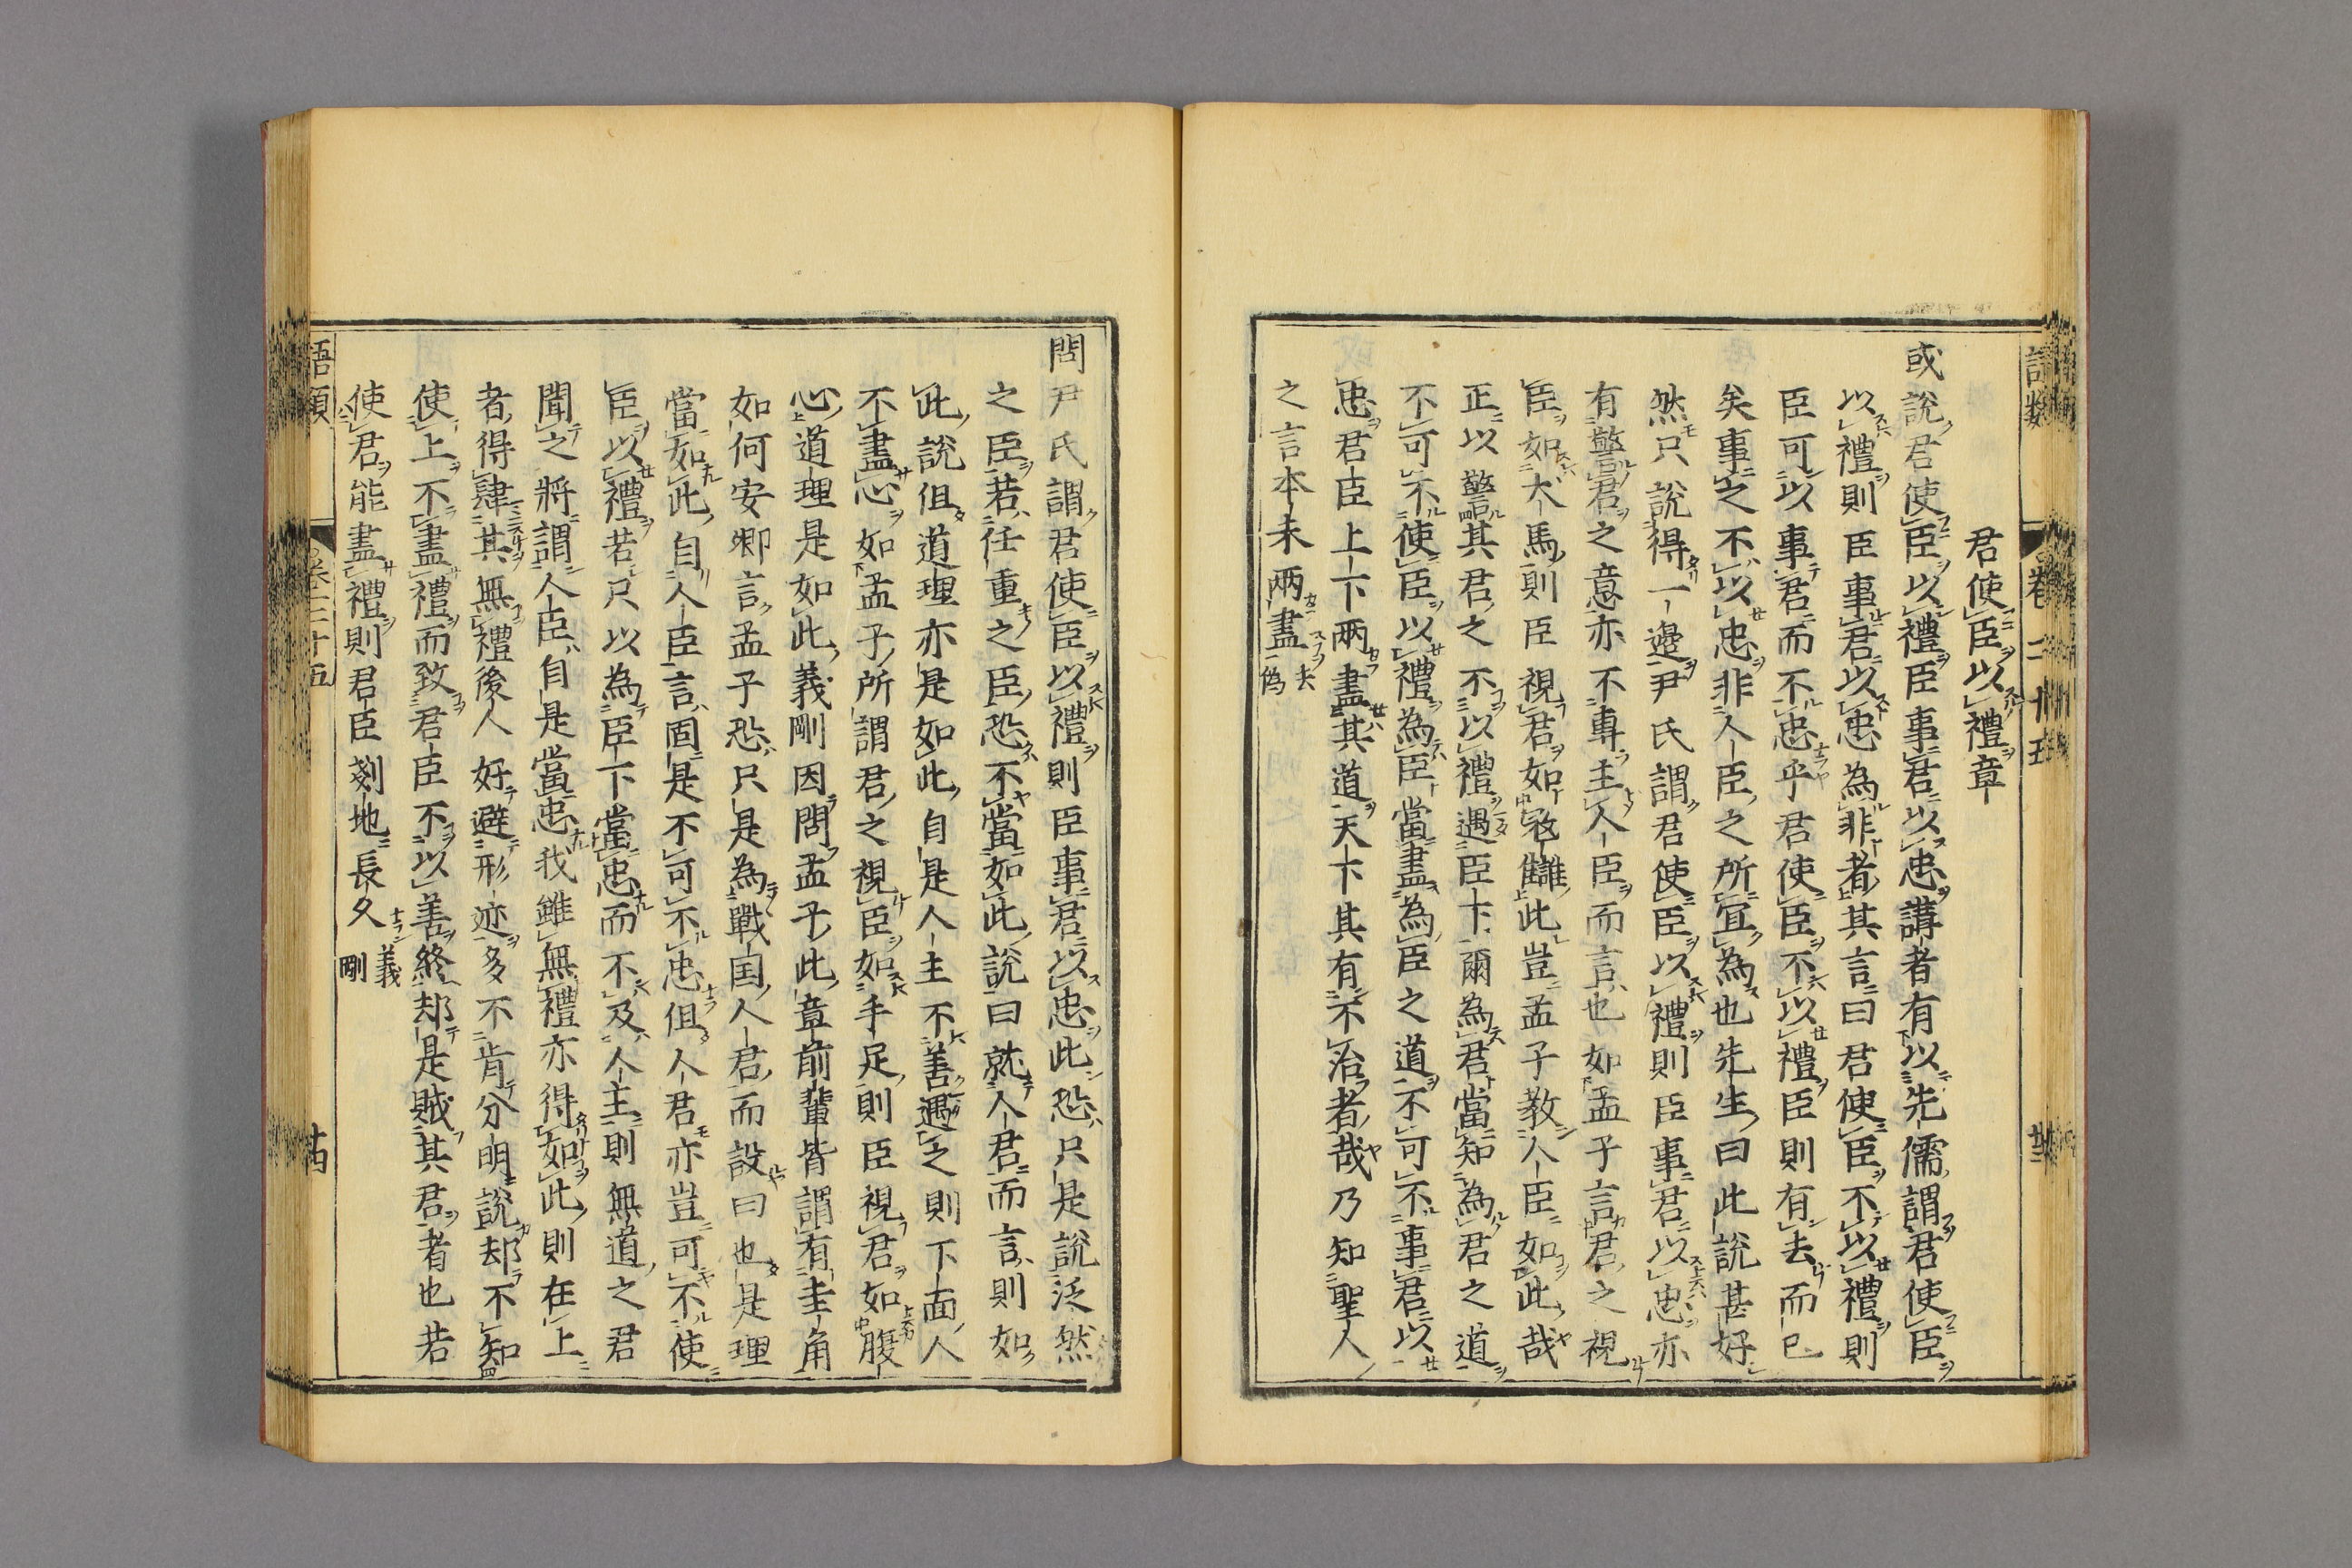 語類 卷二十五
君使臣以禮章
或說君使臣以禮臣事君以忠講者有以先儒謂君使臣
以禮則臣事君以忠為非者其言曰君使臣不以禮則
臣可以事君而不忠乎君使臣不以禮臣則有去而已
矣事之不以忠非人臣之所宜為也先生曰此說甚好
然只說得一邊尹氏謂君使臣以禮則臣事君以忠亦
有警君之意亦不專主人臣而言也如孟子言君之視
臣如犬馬則臣視君如寇讎此豈孟子教人臣如此哉
正以警其君之不以禮遇臣下爾為君當知為君之道
不可不使臣以禮為臣當盡為臣之道不可不事君以
忠君臣上下兩盡其道天下其有不治者哉乃知聖人
之言本末兩盡 去偽
問尹氏謂君使臣以禮則臣事君以忠此恐只是說泛然
之臣若任重之臣恐不當如此說曰就人君而言則如
此說但道理亦是如此自是人主不善遇之則下面人
不盡心如孟子所謂君之視臣如手足則臣視君如腹
心道理是如此義剛因問孟子此章前輩皆謂有圭角
如何安卿言孟子恐只是為戰国人君而設曰也是理
當如此自人臣言固是不可不忠但人君亦豈可不使
臣以禮若只以為臣下當忠而不及人主則無道之君
聞之將謂人臣自是當忠我雖無禮亦得如此則在上
者得肆其無禮後人好避形迹多不肯分明說却不知
使上不盡禮而致君臣不以善終却是賊其君者也若
使君能盡禮則君臣剗地長久 義剛
語類 卷二十五